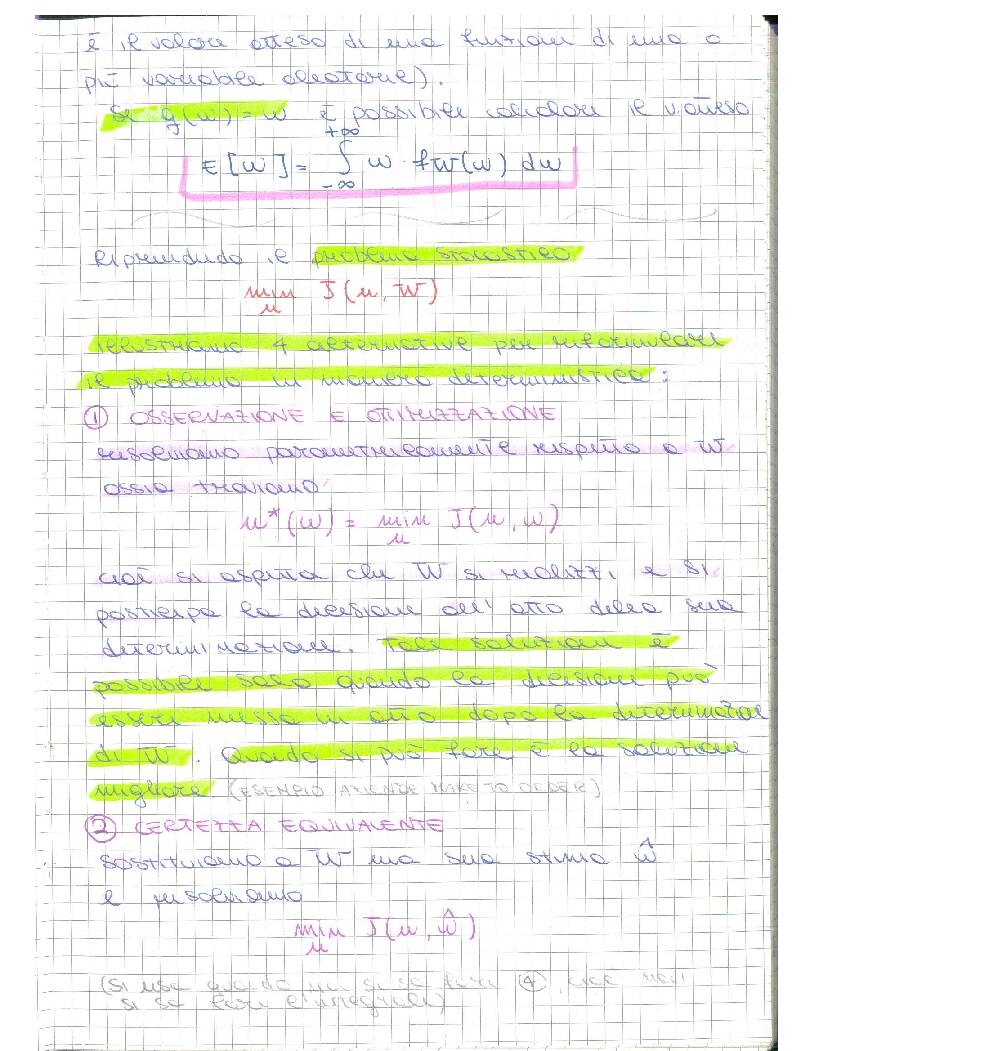 è il valore atteso di una funzione di una o
più variabile aleatorie).
Se g(w) = w è possibile calcolare il v. atteso
E[w] = ∫_{-∞}^{+∞} w · fW(w) dw
Riprendendo il problema stocastico
min_u J(u, W)
illustriamo 4 alternative per riformulare
il problema in maniera deterministica:
① OSSERVAZIONE E OTTIMIZZAZIONE
risolviamo parametricamente rispetto a W
ossia troviamo
u*(w) = min_u J(u, w)
cioè si aspetta che W si realizzi e si
posticipa la decisione all'atto della sua
determinazione. Tale soluzione è
possibile solo quando la decisione può
essere messa in atto dopo la determinazione
di W. Quando si può fare è la soluzione
migliore (ESEMPIO AZIENDE MAKE TO ORDER)
② CERTEZZA EQUIVALENTE
Sostituiamo a W una sua stima ŵ
e risolviamo
min_u J(u, ŵ)
(si usa quando non si sa fare ④, cioè non
si sa fare l'integrale)